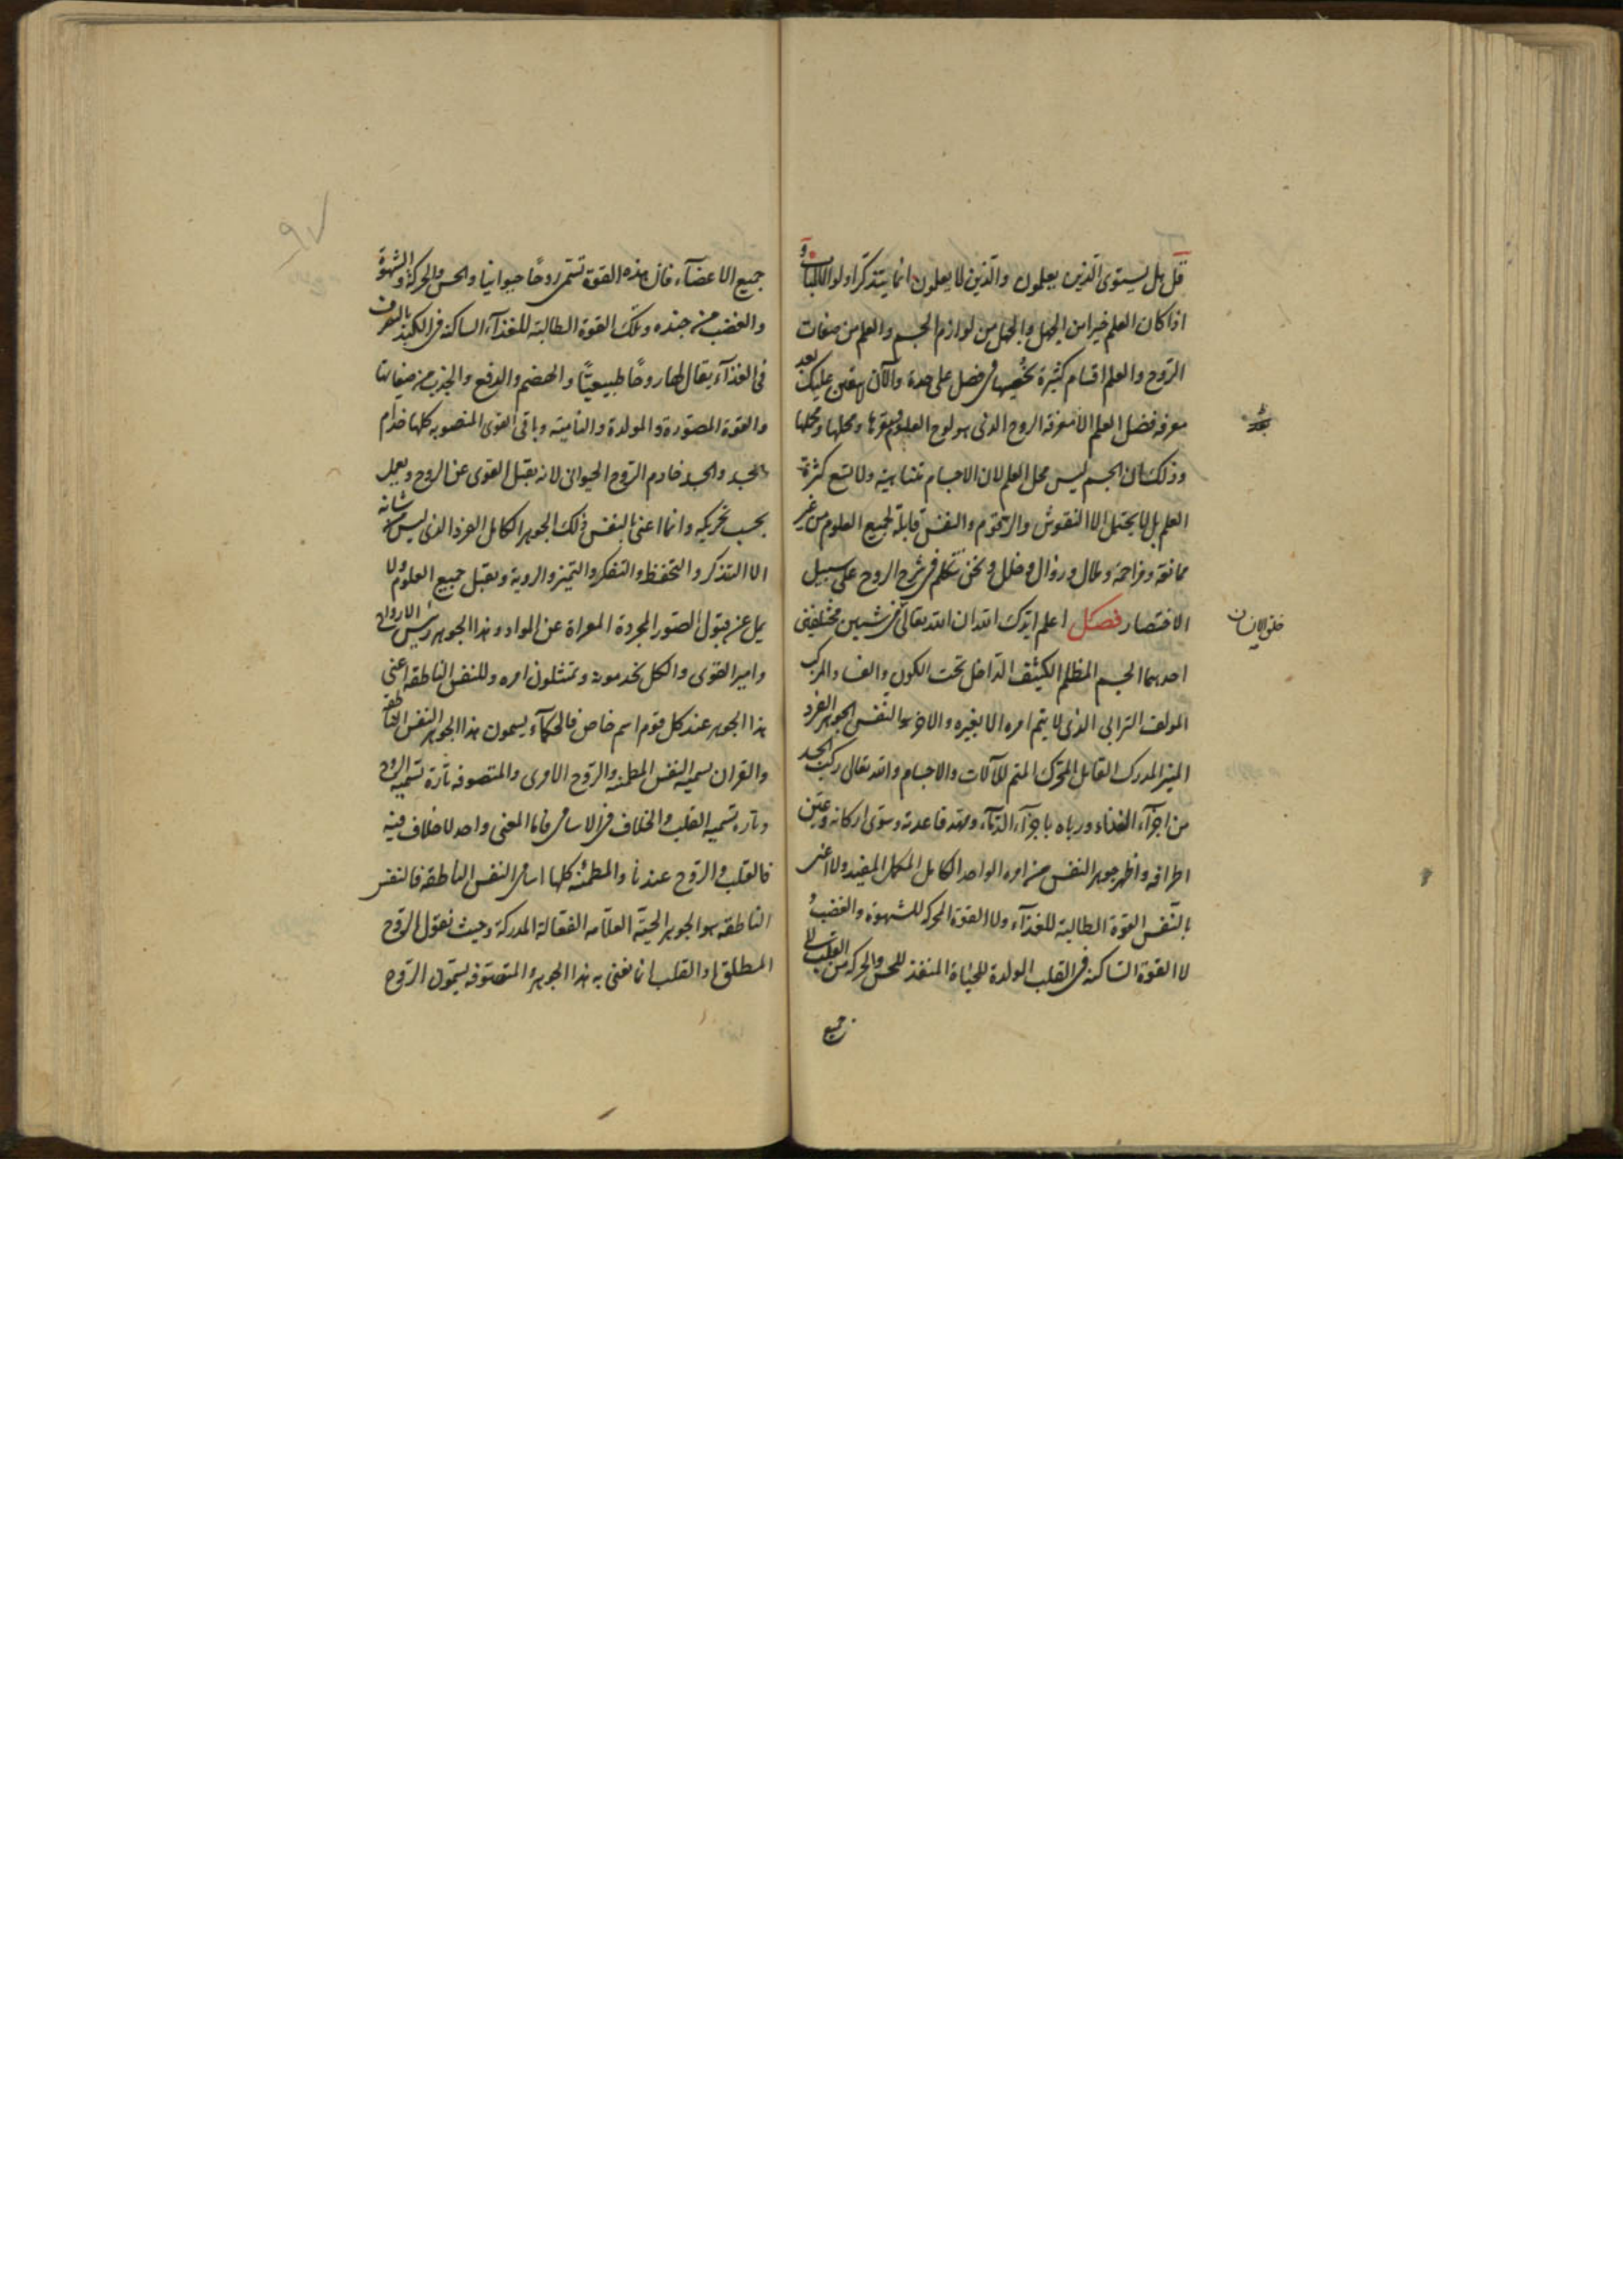 قل هل يستوى الذين يعلمون والذين لا يعلمون انما يتذكر اولوا الالباب و
اذا كان العلم خيرا من الجهل والجهل من لوازم الجسم والعلم من صفات
الروح والعلم اقسام كثيرة نحصيها فى فصل على حدة والآن عليك بعد
معرفة فضل العلم الا معرفة الروح الذى هو لوح العلوم ومقرها ومحلها
وذلك ان الجسم ليس محل العلم لان الاجسام متناهية ولا تسع كثرة
العلم بل لا يحتمل الا النقوش والرقوم والنفس قابلة لجميع العلوم من غير
ممانعة ومزاحمة وملال وزوال وخلل ونحن نتكلم فى شرح الروح على سبيل
الاختصار فصل اعلم ايدك الله ان الله تعالى من شيئين مختلفين
خلق الانسان
احدهما الجسم المظلم الكثيف الداخل تحت الكون والفساد المركب
المولف الترابى الذى لا يتم امره الا بغيره والاخر هو النفس الجوهر الفرد
المنير المدرك الفاعل المحرك المتم للآلات والاجسام والله تعالى ركب الجسد
من اجزآء الغذاء ورباه باجزآء الدمآء ومهد قاعدته وسوى اركانه وعين
اطرافه واظهر جوهر النفس من امره الواحد الكامل المكمل المفيد ولا اعنى
بالنفس القوة الطالبة للغذآء ولا القوة المحركه للشهوة والغضب و
لا القوة الساكنة فى القلب المولدة للحياة المنفذ للحس والحركة من القلب الى
جميع
٩٧
جميع الاعضآء فان هذه القوة تسمى روحًا حيوانيا والحس والحركة والشهوة
والغضب من جنده وتلك القوة الطالبة للغذآء الساكنة فى الكبد بالتصرف
فى الغذآء يقال لها روحًا طبيعيًا والهضم والدفع والجذب من صفاتها
والقوة المصورة والمولدة والنامية وباقى القوى المنصوبه كلها خدام
الجسد والجسد خادم الروح الحيوانى لانه يقبل القوى عن الروح ويعمل
بحسب تحريكه وانما اعنى بالنفس ذلك الجوهر الكامل الفرد الذى ليس شانه
الا التذكر والتحفظ والتفكر والتميز والروية ويقبل جميع العلوم ولا
يمل عن قبول الصور المجردة المعراة عن المواد وهذا الجوهر رئيس الارواح
وامير القوى والكل يخدمونه ويمتثلون امره وللنفس الناطقة اعنى
هذا الجوهر عند كل قوم اسم خاص فالحكمآء يسمون هذا الجوهر النفس الناطقة
والقران يسميه النفس المطمئنه والروح الامرى والمتصوفه تارة تسميه الروح
وتاره تسميه القلب والخلاف فى الاسامى فاما المعنى واحد لا خلاف فيه
فالقلب والروح عندنا والمطمئنه كلها اسامى النفس الناطقة فالنفس
الناطقه هو الجوهر الحية العلامه الفعالة المدركة وحيث نقول الروح
المطلق او القلب انما نعنى به هذا الجوهر والمتصوفه يسمون الروح